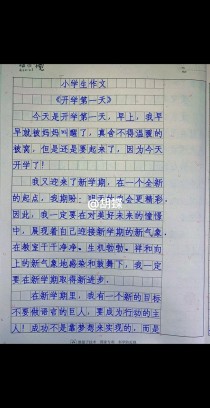 小学生作文
《开学第一天》
今天是开学第一天，早上，我早
早就被妈妈叫醒了，真舍不得温暖的
被窝，但是还是要起来了，因为今天
开学了！
我又迎来了新学期，在一个全新
的起点，我期盼：明天
会更精彩。
@胡蝶
因此，我一定要在对美好未来的憧憬
中，展现着自己连接新学期的新气象
在教室干干净净。生机勃勃。祥和向
上的新气象地感染和鼓舞下，我一定
要在新学期取得新进步。
在新学期里，我有一个新的目标
不要做语言的巨人，要成为行动的主
人！成功不是靠梦想来实现的，而是